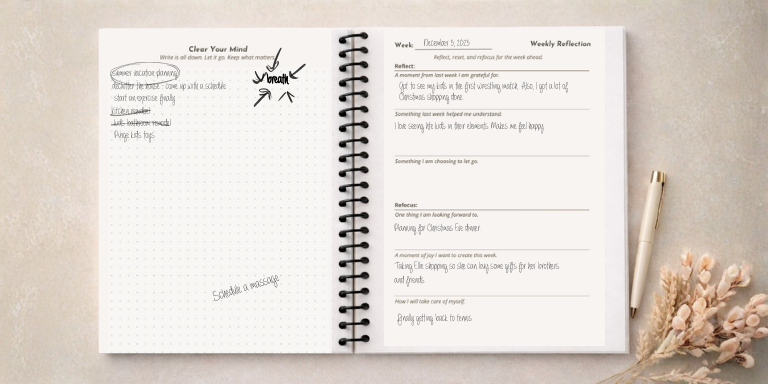 Clear Your Mind
Write is all down. Let it go. Keep what matters.
Summer vacation planning
declutter the house - come up with a schedule
start an exercise finally
kitchen remodel
kids bathroom remodel
Purge kids toys
breath
Schedule a massage
Week: December 5, 2025
Weekly Reflection
Reflect, reset, and refocus for the week ahead.
Reflect:
A moment from last week I am grateful for.
Got to see my kids in the first wrestling match. Also, I got a lot of
Christmas shopping done.
Something last week helped me understand.
I love seeing the kids in their elements. Makes me feel happy
Something I am choosing to let go.
Refocus:
One thing I am looking forward to.
Planning for Christmas Eve dinner.
A moment of joy I want to create this week.
Taking Ella shopping so she can buy some gifts for her brothers
and friends.
How I will take care of myself.
finally getting back to tennis